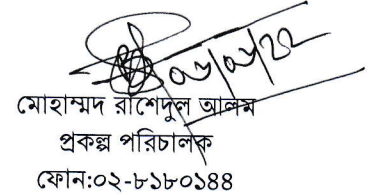 ০৬/০৬/২২
মোহাম্মদ রাশেদুল আলম
প্রকল্প পরিচালক
ফোন:০২-৮১৮০১৪৪